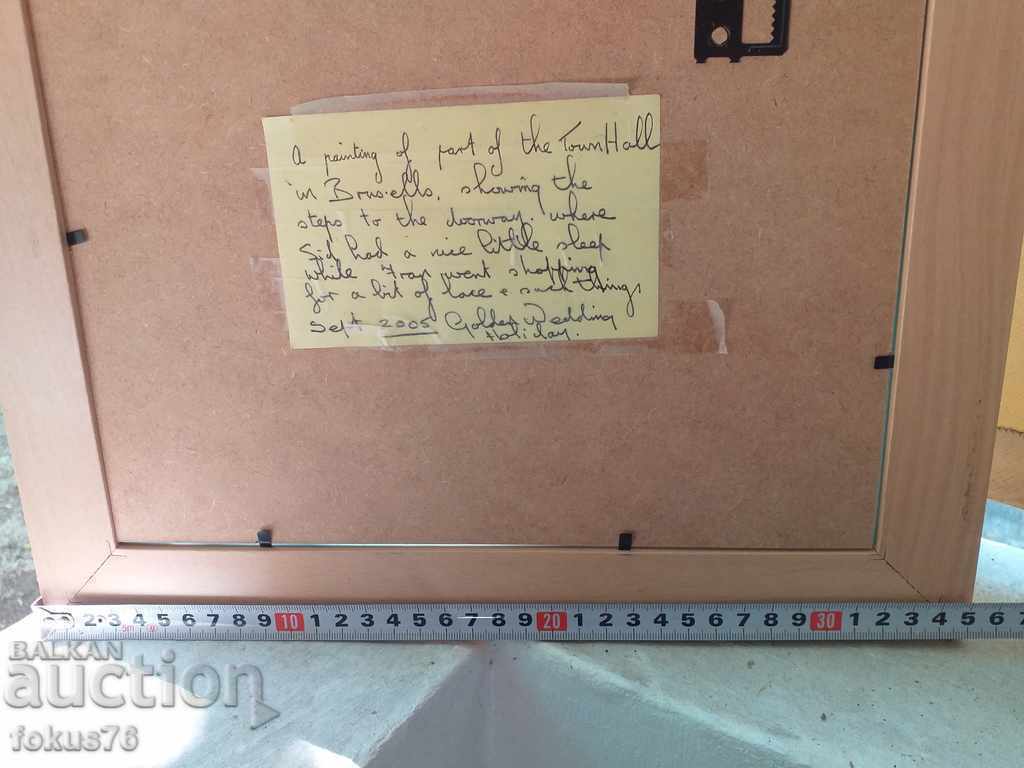 A painting of part of the Town Hall
in Brussells, showing the
steps to the doorway where
Sid had a nice little sleep
while Fran went shopping
for a bit of lace & such things
Sept 2005 Golden Wedding
Holiday.
2 3 4 5 6 7 8 9 10 1 2 3 4 5 6 7 8 9 20 1 2 3 4 5 6 7 8 9 30 1 2 3 4 5 6 7
5m
BALKAN
auction
fokus76